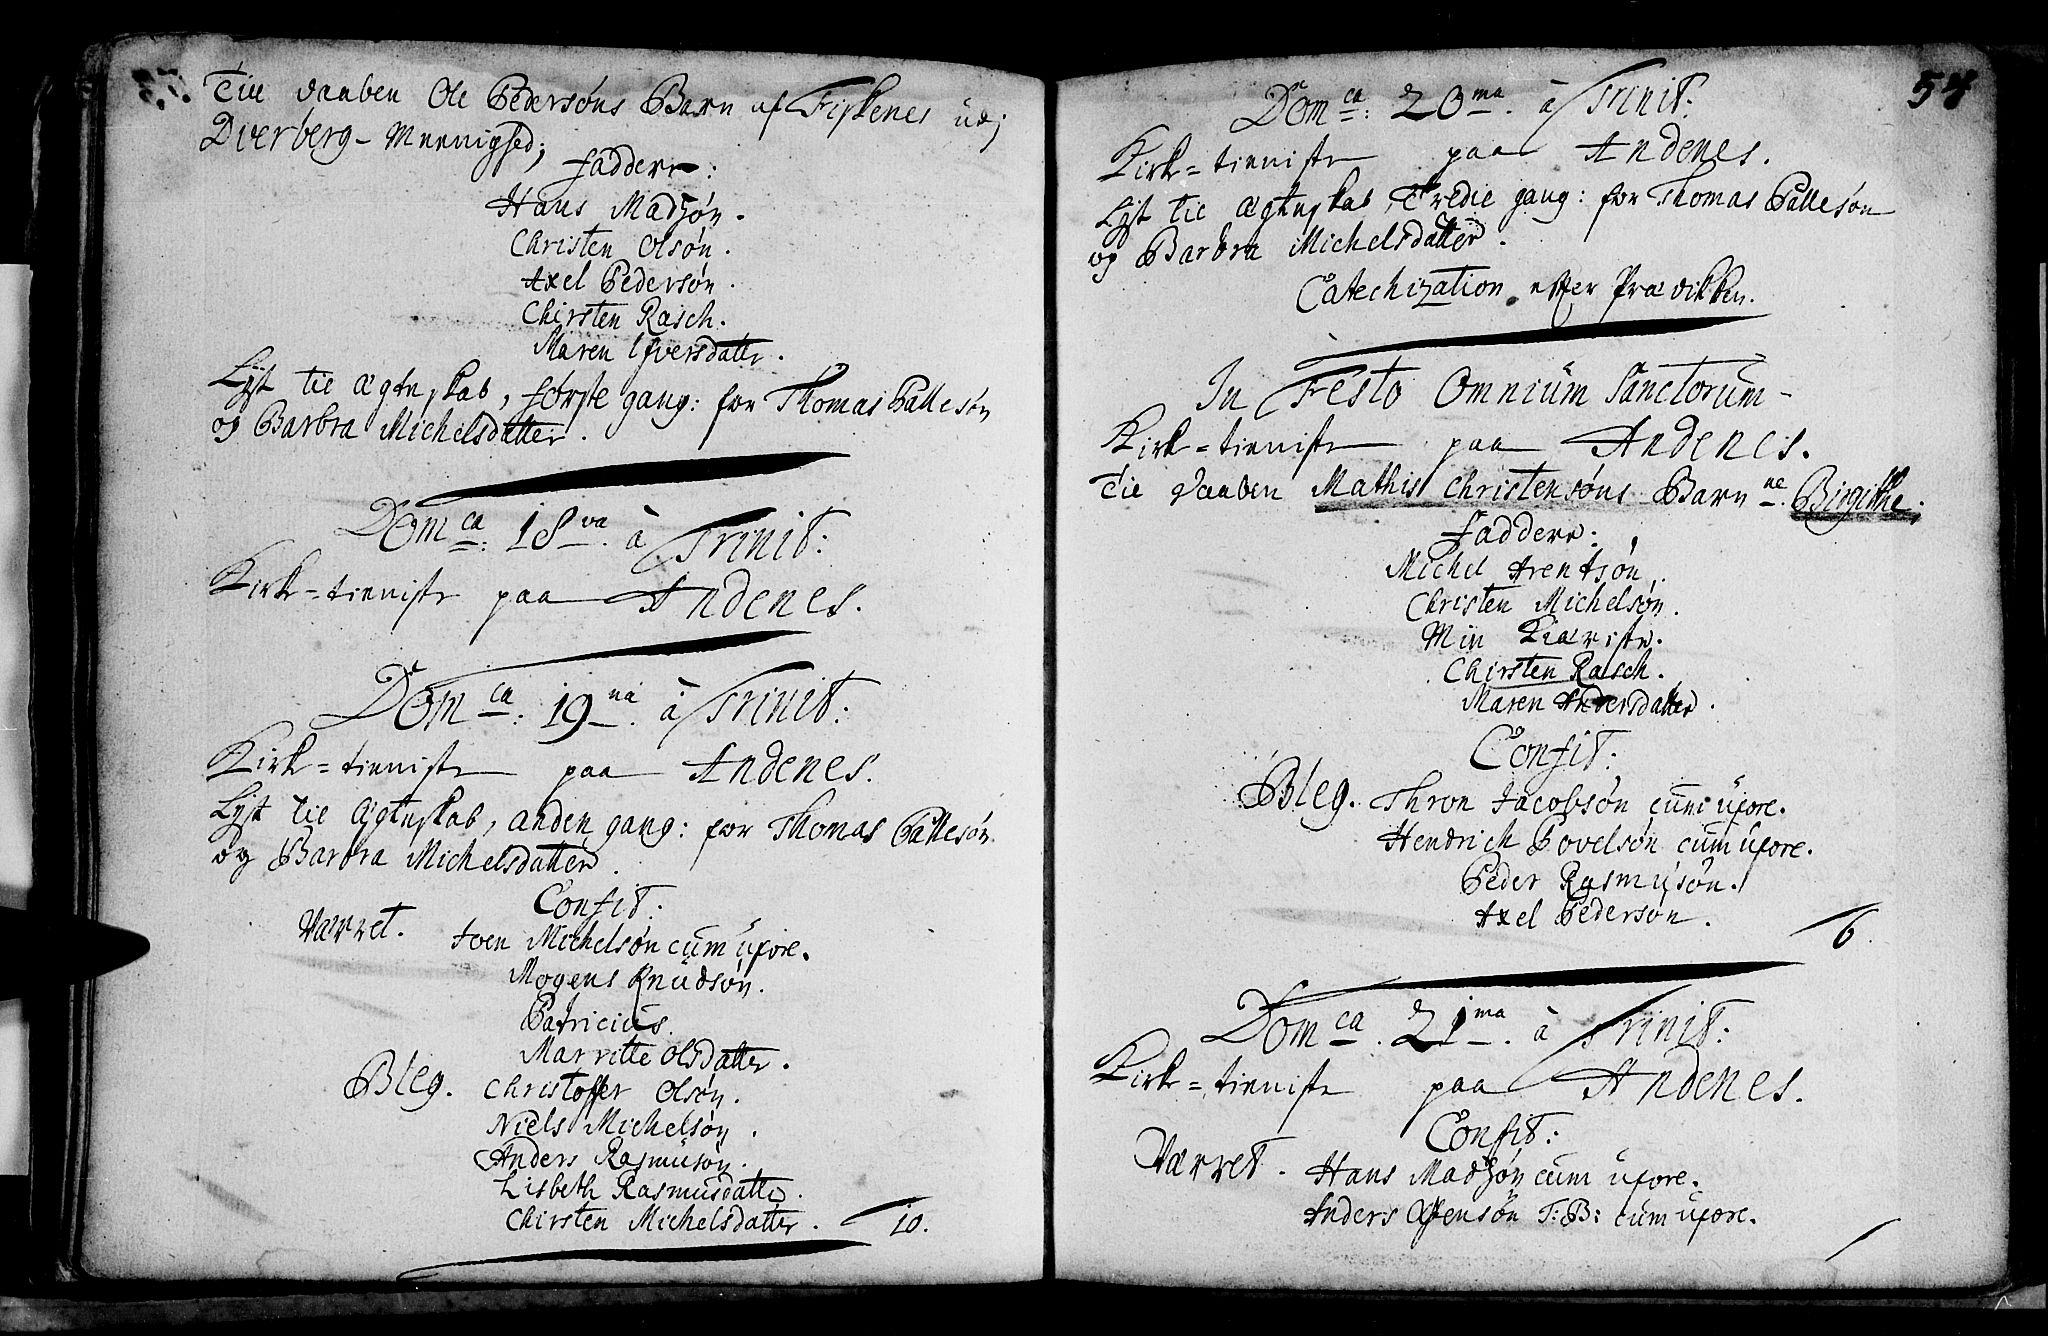 Till daaben Ole Pedersøns Barn af Fiskenes udj
Dverberg-Meenighed;
faddere:
Hans Madsøn.
Christen Olsøn.
Axel Pedersøn.
Chirsten Rasch.
Maren Ifversdatter.
Lyst til ægteskab, første gang: for Thomas Pallesøn
og Barbra Michelsdatter.
Dom ca: 18 va. à Trinit:
Kirke=tieniste paa Andenes.
Dom ca: 19 na. à Trinit:
Kirke=tieniste paa Andenes.
Lyst til ægteskab, anden gang: for Thomas Pallesøn
og Barbra Michelsdatter.
Confit:
Værret. Iven Michelsøn cum uxore.
Mogens Knudsøn.
Patricius.
Marritte Olsdatter.
Bleg. Christoffer Olsøn.
Niels Michelsøn.
Anders Rasmusøn.
Lisbeth Rasmusdatter.
Chirsten Michelsdatter. 10.
54
Dom ca: 20 ma. à Trinit:
Kirke=tieniste paa Andenes.
Lyst til ægteskab, tredie gang: for Thomas Pallesøn
og Barbra Michelsdatter.
Catechization efter Prædikken.
In Festo Omnium Sanctorum-
Kirke=tieniste paa Andenes.
Til daaben Mathis Christensøns Barn ne. Birgitthe;
faddere:
Michel Arentsøn.
Christen Michelsøn.
Min Kiæriste.
Chirsten Rasch.
Maren Andersdatter.
Confit:
Bleg. Thron Jacobsøn cum uxore.
Hendrich Povelsøn cum uxore.
Peder Rasmusøn.
Axel Pedersøn.
6.
Dom ca. 21 ma. à Trinit:
Kirke=tieniste paa Andenes.
Confit:
Værret. Hans Madsøn cum uxore.
Anders T:B: cum uxore.